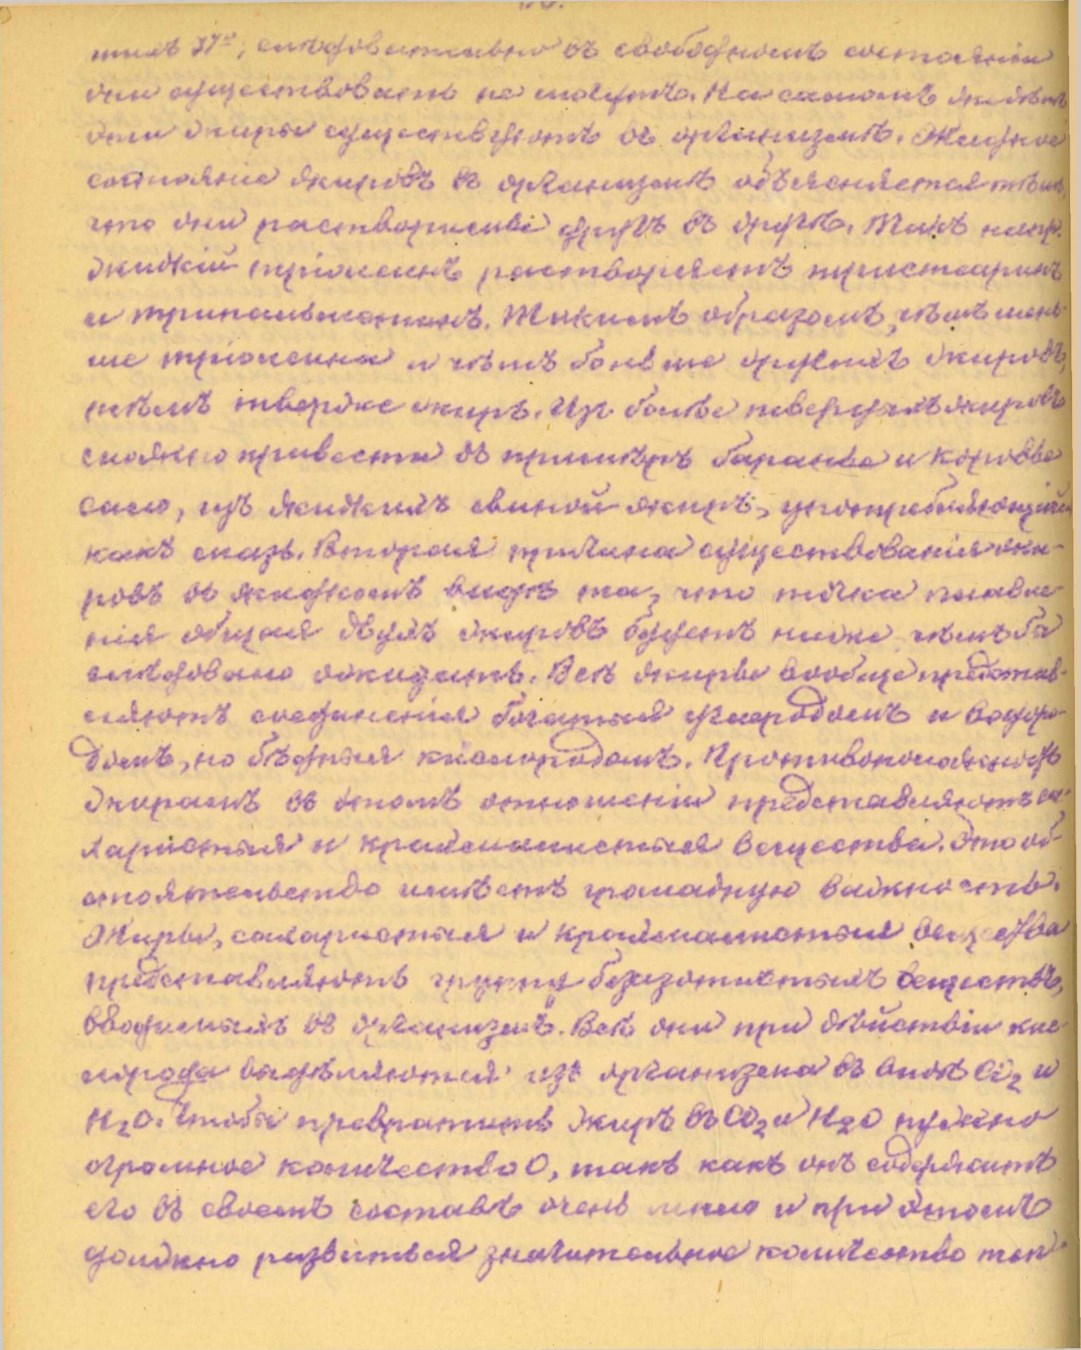 тивъ 37°; слѣдовательно въ свободномъ состояніи
они существовать не могутъ. На самомъ же дѣлѣ
эти жиры существуютъ въ организмѣ. Жидкое
состояніе жировъ въ организмѣ объясняется тѣмъ,
что они растворимы другъ въ другѣ. Такъ напр.
жидкій тріолеинъ растворяетъ тристеаринъ
и трипальмитинъ. Такимъ образомъ, чѣмъ мень-
ше тріолеина и чѣмъ больше другихъ жировъ,
тѣмъ тверже жиръ. Изъ болѣе твердыхъ жировъ
можно привести въ примѣръ баранье и коровье
сало, изъ жидкихъ свиной жиръ, употребляющійся
какъ мазь. Вторая причина существованія жи-
ровъ въ жидкомъ видѣ та, что точка плавле-
нія общая двухъ жировъ будетъ ниже, чѣмъ бы
слѣдовало ожидать. Всѣ жиры вообще представ-
ляютъ соединенія богатыя углеродомъ и водоро-
домъ, но бѣдныя кислородомъ. Противоположность
жирамъ въ этомъ отношеніи представляютъ са-
харистыя и крахмалистыя вещества. Это об-
стоятельство имѣетъ громадную важность.
Жиры, сахаристыя и крахмалистыя вещества
представляютъ группу безазотистыхъ веществъ,
вводимыхъ въ организмъ. Всѣ они при дѣйствіи кис-
лорода выдѣляются изъ организма въ видѣ CO₂ и
H₂O. Чтобы превратить жиръ въ CO₂ и H₂O нужно
огромное количество O, такъ какъ онъ содержитъ
его въ своемъ составѣ очень мало и при этомъ
должно развиться значительное количество теп-